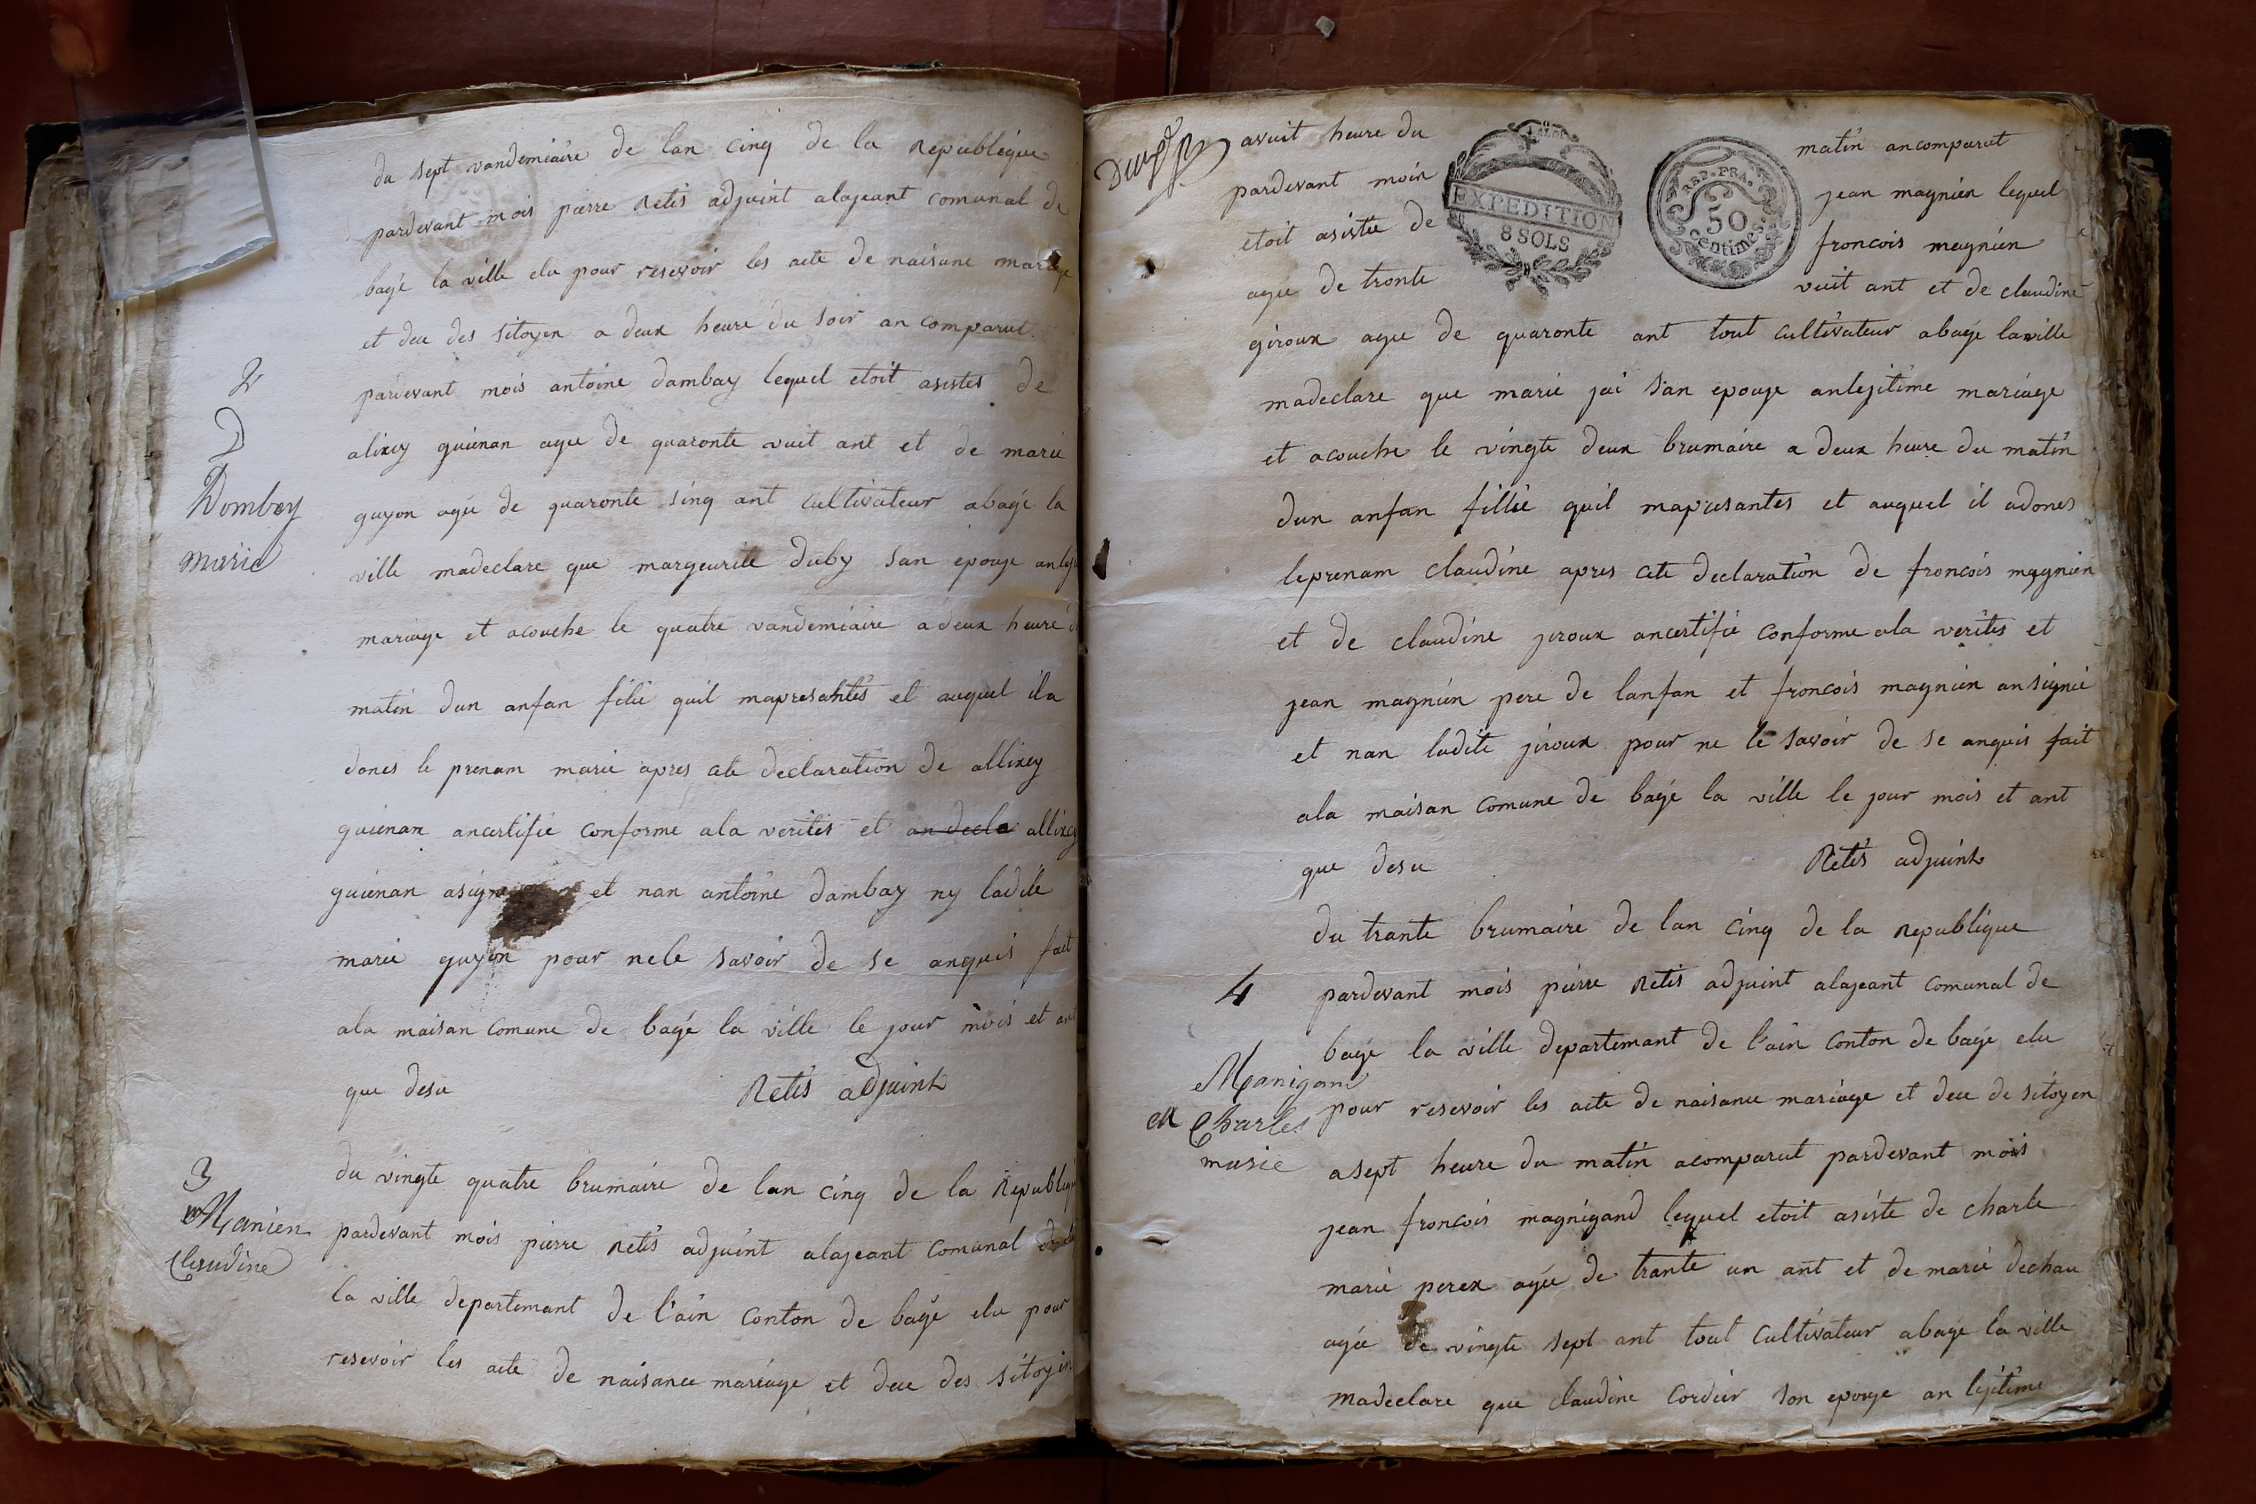 du sept vandemiaire de lan cinq de la Republique
pardevant mois pierre Retis adjuint alajeant comunal de
bagé la ville elu pour resevoir les acte de naisane mariage
et dee des sitoyen a deux heure du soir an comparut
pardevant mois antoine dambay lequel etoit asistes de
2
D
Dombey
marie
alixcy guienan agee de quaronte vuit ant et de marie
guyon agée de quaronte sinq ant cultivateur abagé la
ville madeclare que margeurite duby san epouze
mariage et acouche le quatre vandemiaire a deux heure
matin dun anfan filie quil mapresantés et auquel ila
dones le prenam marie apres cete declaration de allixcy
guienan ancertifie conforme ala verités et an decla allixcy
guienan asigne et nan antoine dambay ny ladite
marie guyon pour nele savoir de se anquis fait
ala maisan comune de bagé la ville le jour mois et ant
que desu Retis adjuint
3
Manien
Claudine
du vingte quatre brumaire de lan cinq de la Republique
pardevant mois pierre Retis adjuint alajeant comunal
la ville departemant de l'ain conton de bagé elu pour
resevoir les acte de naisance mariage et dee des sitoyin
avuit heure du matin ancomparut
pardevant moin jean magnien lequel
etoit asistée de froncois magnien
agee de tronte vuit ant et de claudine
EXPEDITION
8 SOLS
REP. FRA.
50
centimes
giroux agee de quaronte ant tout cultivateur abagé laville
madeclare que marie jai s'an epouze anlejitime mariage
et acouche le vingte deux brumaire a deux heure du matin
dun anfan fillie quil mapresantes et auquel il adones
leprenam claudine apres cete declaration de froncois magnien
et de claudine jiroux ancertifie conforme ala verités et
jean magnien pere de lanfan et froncois magnien ansignie
et nan ladite jiroux pour ne le savoir de se anquis fait
ala maisan comune de bagé la ville le jour mois et ant
que desu Retis adjuint
du trante brumaire de lan cinq de la Republique
4
pardevant mois pierre Retis adjuint alajeant comunal de
bagé la ville departemant de l'ain conton de bagé elu
Manigam
Charles
marie
pour resevoir les acte de naisanee mariage et dee de sitoyen
asept heure du matin acomparut pardevant mois
jean froncois magnigand lequel etoit asiste de charle
marie perex agée de trante un ant et de marie dechau
agée de vingte sept ant tout cultivateur abagé la ville
madeclare que claudine cordier son epouze an lejitime